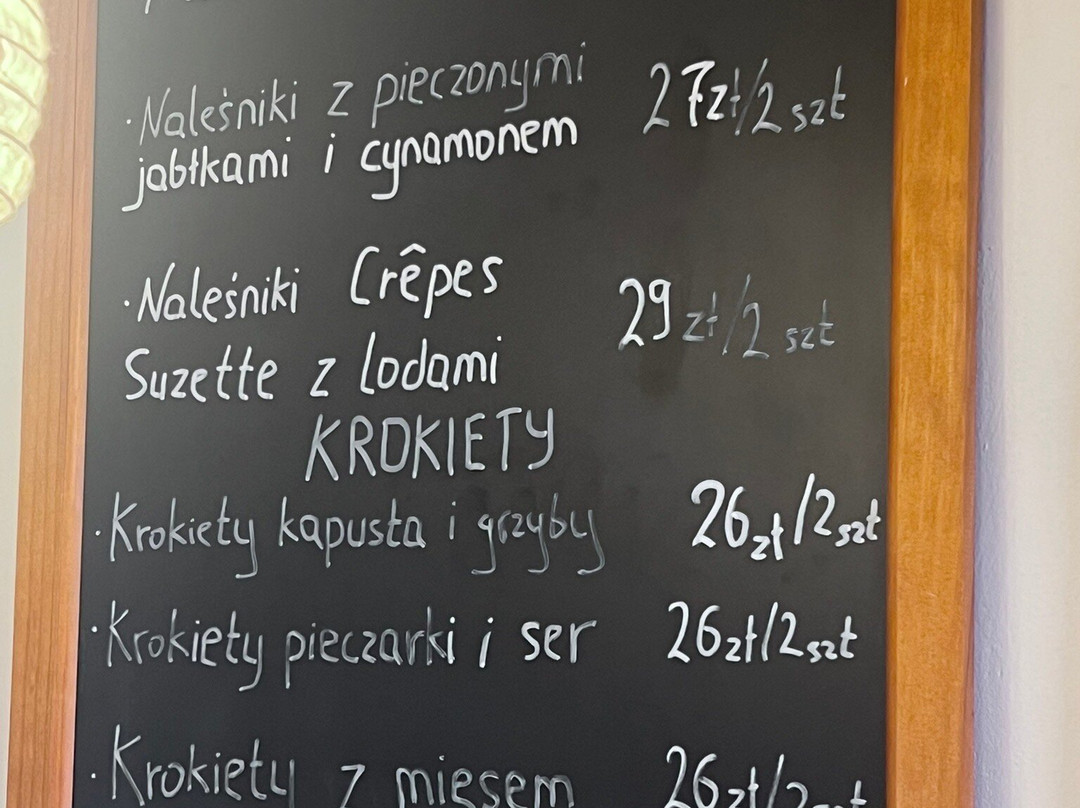 · Naleśniki z pieczonymi 27zł/2 szt
jabłkami i cynamonem
· Naleśniki Crêpes 29 zł/2 szt
Suzette z lodami
KROKIETY
· Krokiety kapusta i grzyby 26zł/2szt
· Krokiety pieczarki i ser 26zł/2szt
· Krokiety z mięsem 26zł/2szt